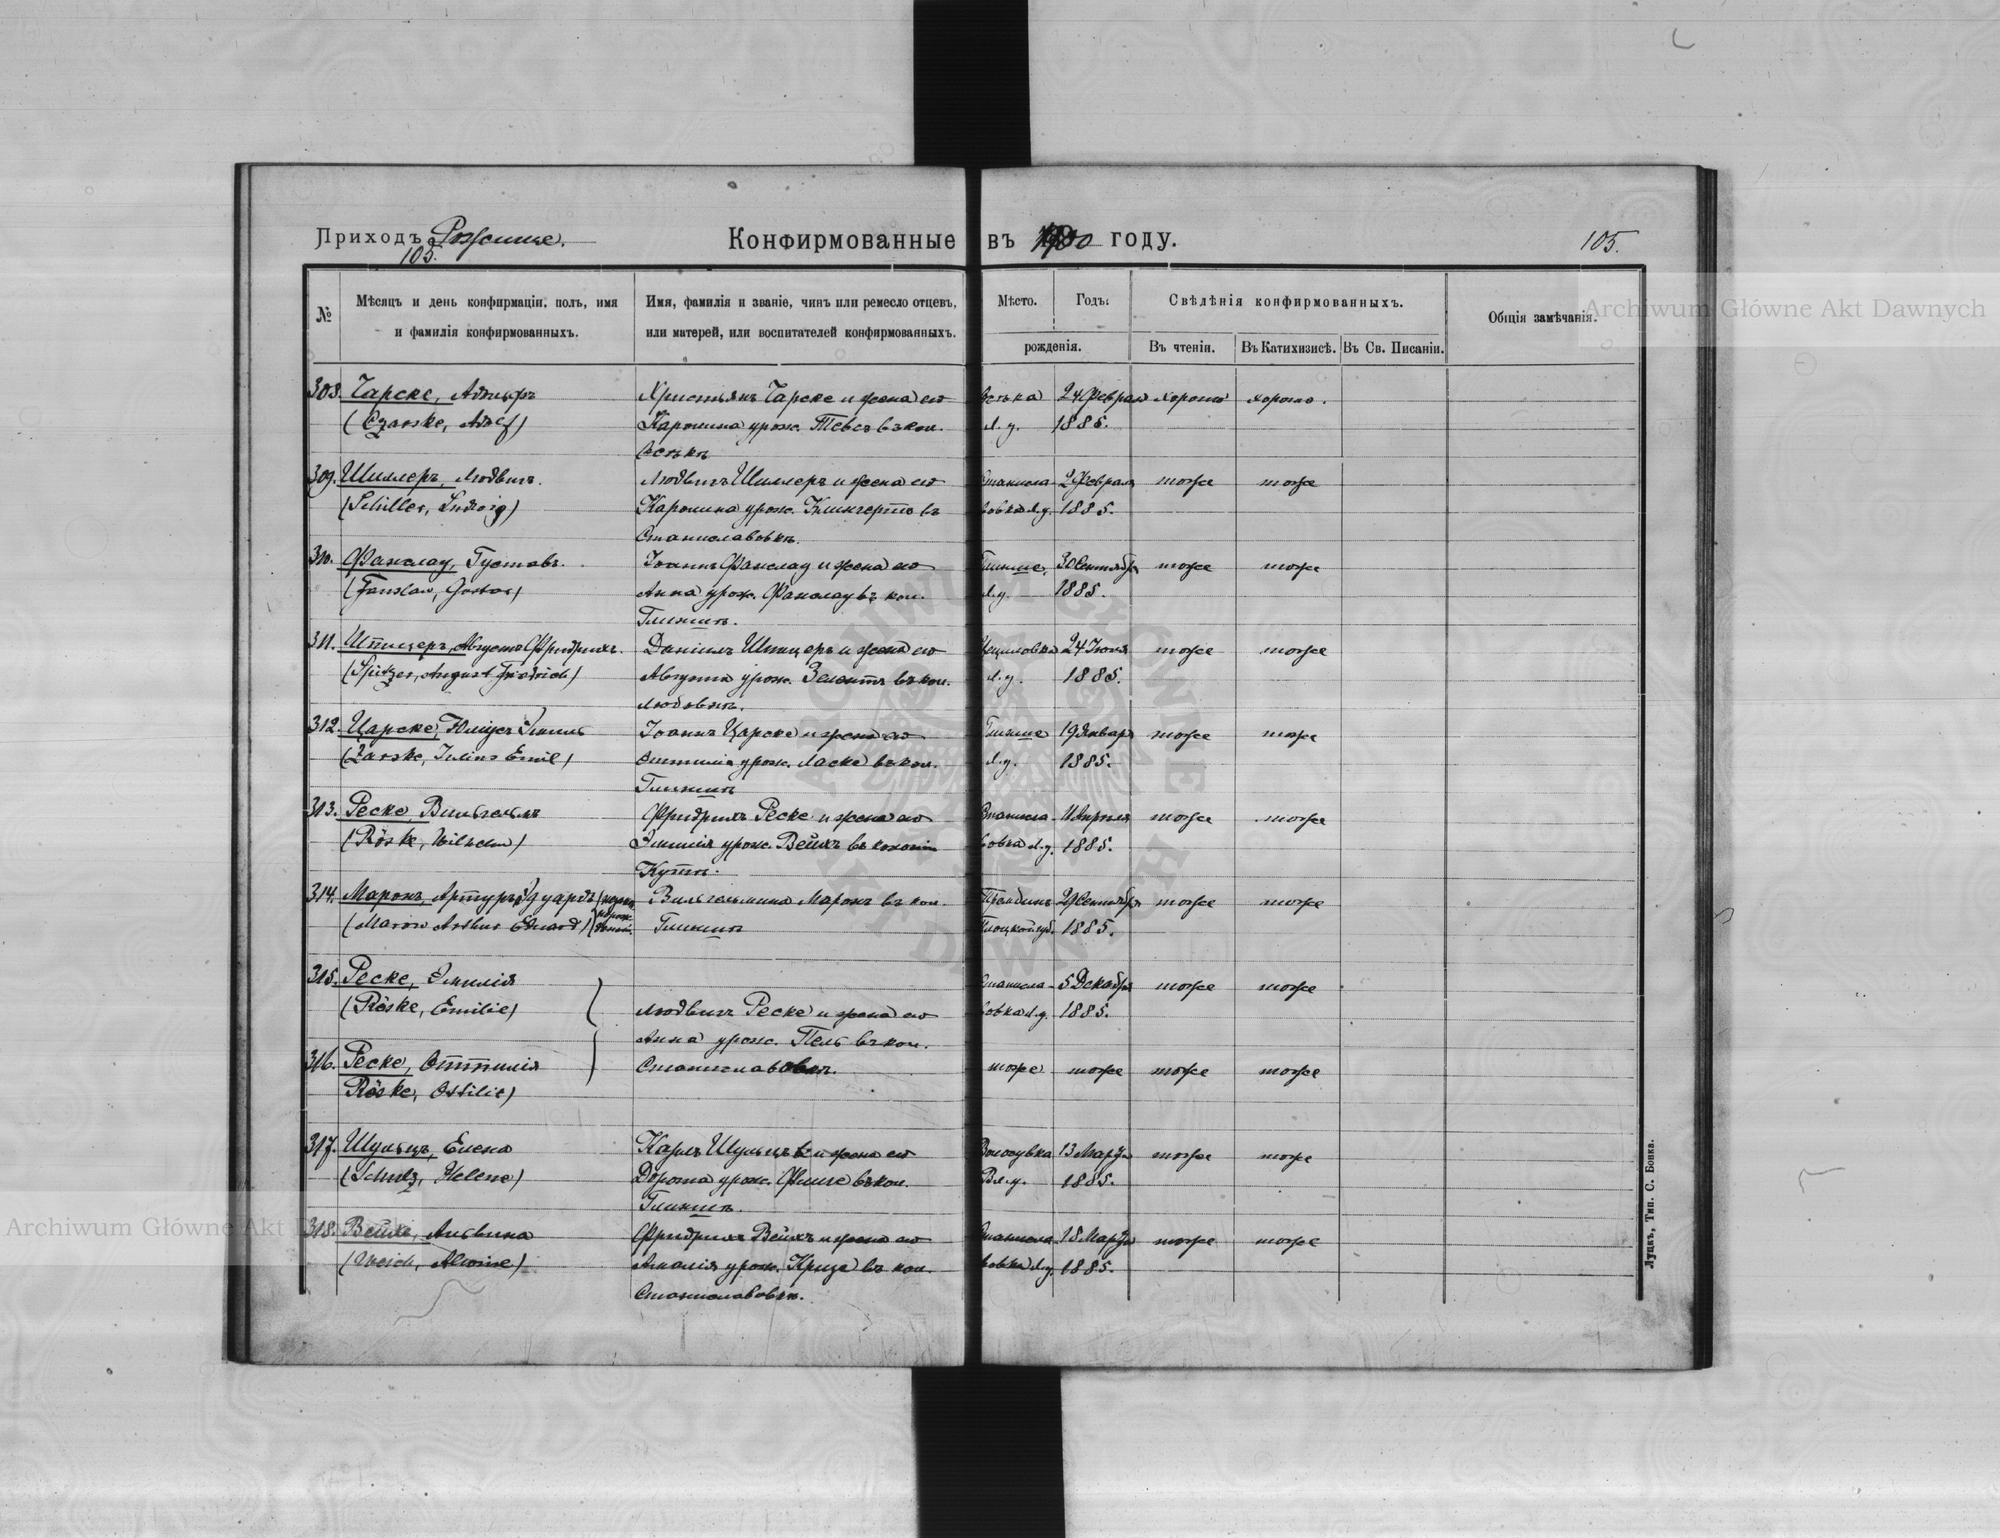 Приходъ Рожище.
105.
Конфирмованные въ 1900 году.
105.
№
Мѣсяцъ и день конфирмаціи, полъ, имя
и фамилія конфирмованныхъ.
Имя, фамилія и званіе, чинъ или ремесло отцевъ,
или матерей, или воспитателей конфирмованныхъ.
Мѣсто.
Годъ:
рожденія.
Свѣдѣнія конфирмованныхъ.
Въ чтеніи.
Въ Катихизисѣ.
Въ Св. Писаніи.
Общія замѣчанія.
308. Чарске, Адольфъ
(Czarske, Adolf)
Христьянъ Чарске и жена его
Каролина урож. Тевсъ въ кол.
24 Феврал
1885.
хорошо
хорошо.
309. Шиллеръ, Людвигъ.
(Schiller, Ludwig)
Людвигъ Шиллеръ и жена его
Каролина урож. Клингертъ въ
Станиславовкѣ.
Станисла-
вовка Л.у.
2 Февраля
1885.
тоже
тоже
310. Фанслау, Густавъ.
(Fanslau, Gustav)
Іоаннъ Фанслау и жена его
Анна урож. Фанслау въ кол.
Глинищѣ.
Глинище,
Л.у.
30 Сентября
1885.
тоже
тоже
311. Шпицеръ, Августъ Фридрихъ.
(Spitzer, August Friedrich)
Даніилъ Шпицеръ и жена его
Августа урож. Зелентъ въ кол.
Л.у.
24 Іюля
1885.
тоже
тоже
312. Царске, Юліусъ Эмиль
(Zarske, Julius Emil)
Іоаннъ Царске и жена его
Оттилія урож. Ласке въ кол.
Глинищѣ
Глинище
Л.у.
19 Января
1885.
тоже
тоже
313. Реске, Вильгельмъ
(Röske, Wilhelm)
Фридрихъ Реске и жена его
Эмилія урож. Вейхъ въ колоніи
Станисла-
вовка Л.у.
11 Апрѣля
1885.
тоже
тоже
314. Маронъ, Артуръ Эдуардъ
(Maron Arthur Eduard)
Вильгельмина Маронъ въ кол.
Глинищѣ
Плоцкой губ.
29 Сентября
1885.
тоже
тоже
315. Реске, Эмилія
(Röske, Emilie)
Людвигъ Реске и жена его
Анна урож. Пель въ кол.
Станиславовкѣ.
Станисла-
вовка Л.у.
5 Декабря
1885.
тоже
тоже
316. Реске, Оттилія
Röske, Ottilie)
тоже
тоже
тоже
тоже
317. Шульцъ, Елена
(Schulz, Helene)
Карлъ Шульцъ и жена его
Дорота урож. Фише въ кол.
Глинищѣ.
Вл.у.
13 Марта
1885.
тоже
тоже
318. Вейхе, Альвина
(Weich, Alwine)
Фридрихъ Вейхъ и жена его
Амалія урож. Кризе въ кол.
Станиславовкѣ.
Станисла-
вовка Л.у.
18 Марта
1885.
тоже
тоже
Луцкъ, Тип. С. Бонка.
Archiwum Główne Akt Dawnych
Archiwum Główne Akt Dawnych